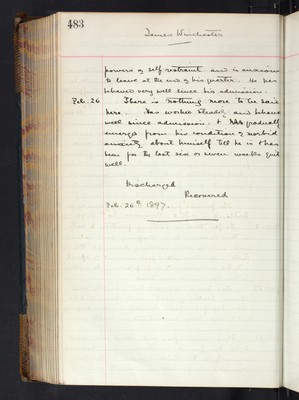 483
James Winchester
powers of self restraint and is anxious
to leave at the end of his quarter. He has
behaved very well since his admission.
Feb. 26 There is nothing more to be said
here. Has worked steadily and behaved
well since admission. & has gradually
emerged from his condition of morbid
anxiety about himself till he is & has
been for the last six or seven weeks quite
well.
Discharged
Recovered
Feb. 26th 1897.